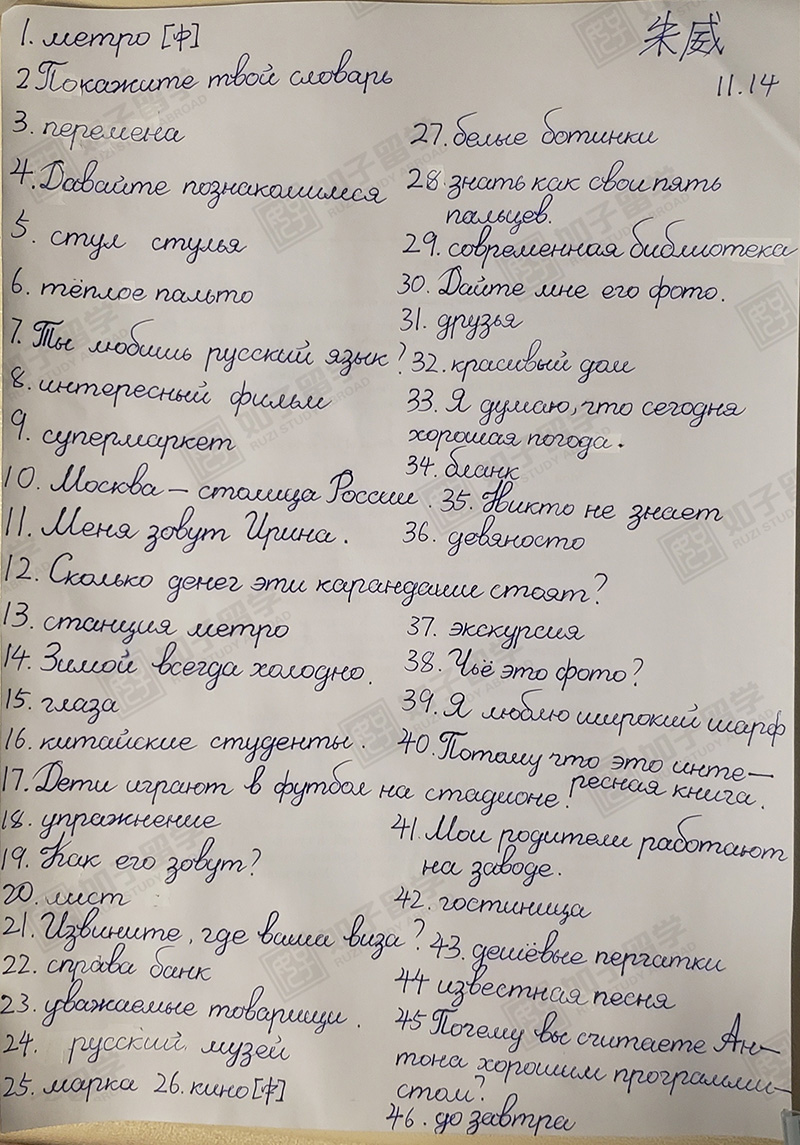 朱威
11.14
1. метро [中]
2 Покажите твой словарь
3. перемена
4. Давайте познакомимся
5. стул стулья
6. тёплое пальто
7. Ты любишь русский язык?
8. интересный фильм
9. супермаркет
10. Москва – столица России.
11. Меня зовут Ирина.
12. Сколько денег эти карандаши стоят?
13. станция метро
14. Зимой всегда холодно.
15. глаза
16. китайские студенты.
17. Дети играют в футбол на стадионе.
18. упражнение
19. Как его зовут?
20. лист
21. Извините, где ваша виза?
22. справа банк
23. уважаемые товарищи.
24. русский музей
25. марка 26. кино [中]
27. белые ботинки
28. знать как свои пять
пальцев.
29. современная библиотека
30. Дайте мне его фото.
31. друзья
32. красивый дом
33. Я думаю, что сегодня
хорошая погода.
34. бланк
35. Никто не знает
36. девяносто
37. экскурсия
38. Чьё это фото?
39. Я люблю широкий шарф
40. Потому что это инте–
ресная книга.
41. Мои родители работают
на заводе.
42. гостиница
43. дешёвые перчатки
44 известная песня
45 Почему вы считаете Ан–
тона хорошим программи–
стом?
46. до завтра
如子留学
RUZI STUDY ABROAD